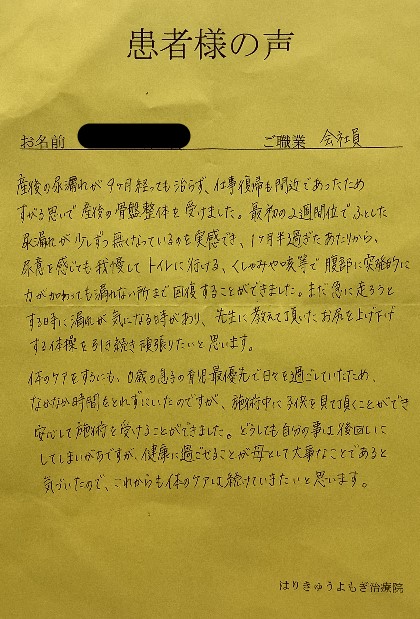 患者様の声
お名前 ご職業 会社員
産後の尿漏れが4ヶ月経っても治らず、仕事復帰も間近であったため
すがる思いで産後の骨盤整体を受けました。最初の2週間位でふとした
尿漏れが少しずつ無くなっているのを実感でき、1ヶ月半過ぎたあたりから、
尿意を感じても我慢してトイレに行ける、くしゃみや咳等で腹部に突発的に
力が加わっても漏れない所まで回復することができました。まだ急に走ろうと
する時に漏れが気になる時があり、先生に教えて頂いたお尻を上げ下げ
する体操を引き続き頑張りたいと思います。
体のケアをするにも、0歳の息子の育児最優先で日々を過ごしていたため、
なかなか時間をとれずにいたのですが、施術中に子供を見て頂くことができ
安心して施術を受けることができました。どうしても自分の事は後回しに
してしまいがちですが、健康に過ごせることが母として大事なことであると
気づいたので、これからも体のケアは続けていきたいと思います。
はりきゅうよもぎ治療院